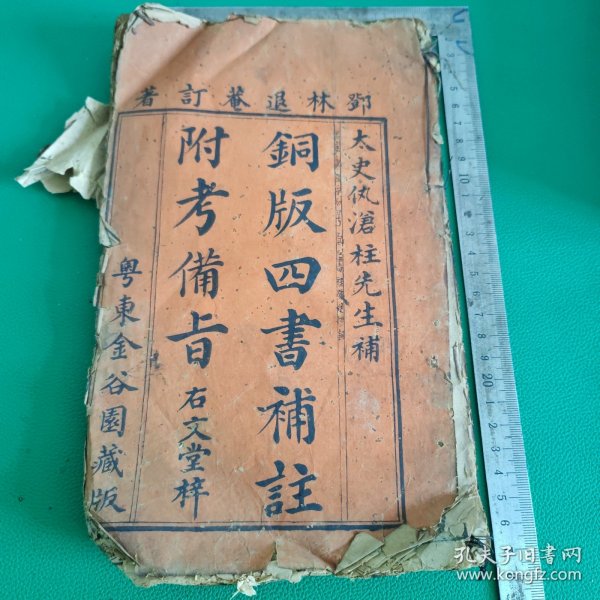 鄧林退菴訂著
太史仇滄柱先生補
銅版四書補註
附考備旨
右文堂梓
粵東金谷園藏版
孔夫子旧书网
www.kongfz.com